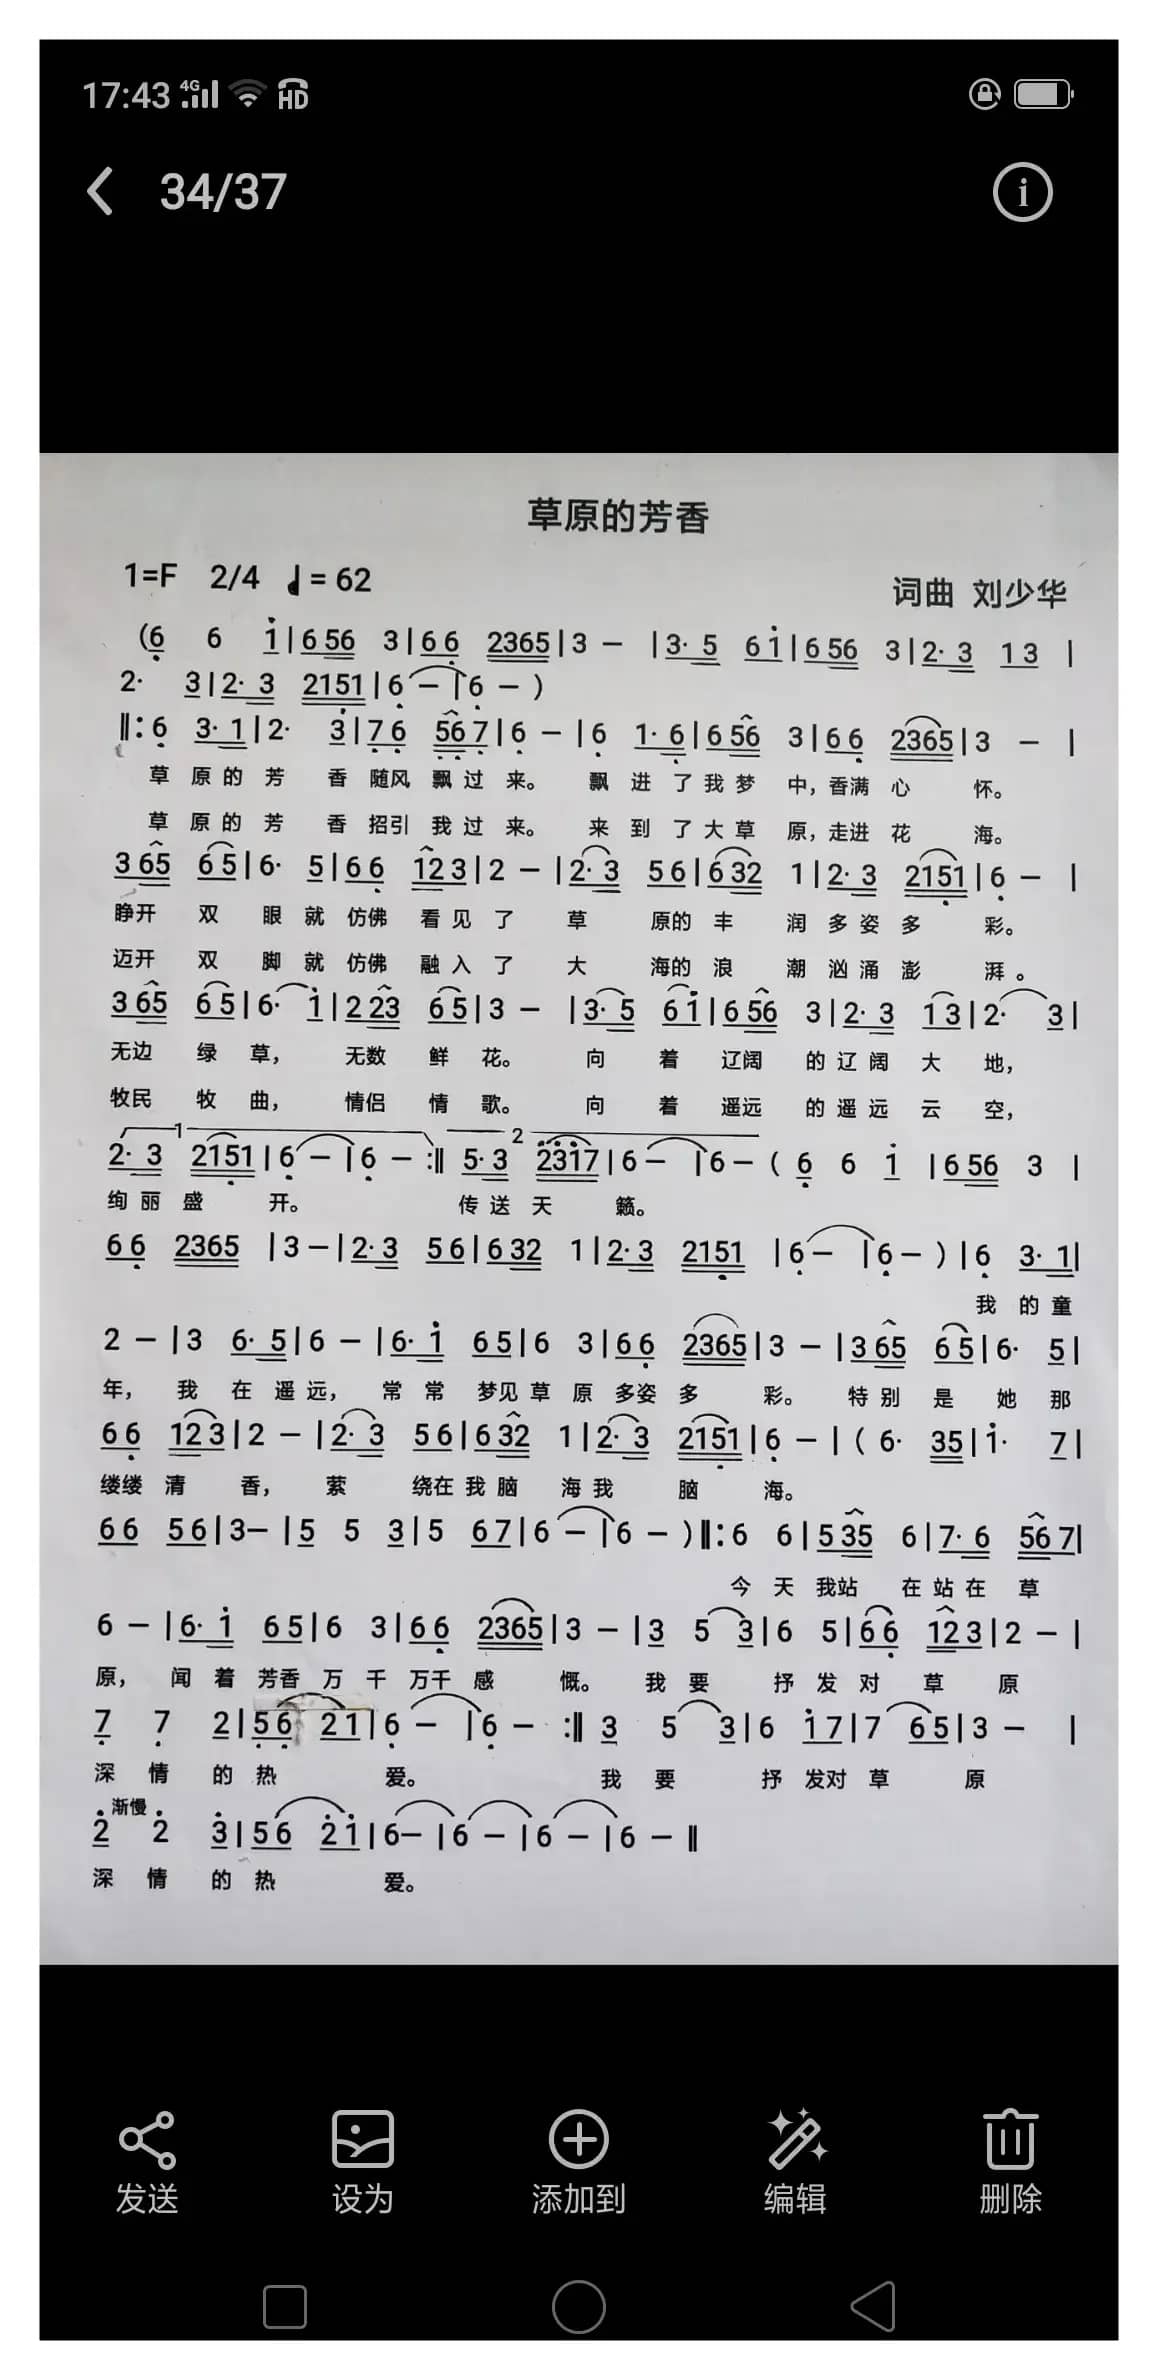 17:43 4G HD
34/37
草原的芳香
1=F 2/4 ♩= 62
词曲 刘少华
(6 6 1|6 56 3|6 6 2365|3 — |3· 5 6 1|6 56 3|2· 3 1 3 |
2· 3|2· 3 2151|6 — |6 — )
‖: 6 3· 1|2· 3|7 6 56 7|6 — |6 1· 6|6 56 3|6 6 2365|3 — |
草 原 的 芳 香 随风 飘 过 来。 飘 进 了 我 梦 中，香满 心 怀。
草 原 的 芳 香 招引 我 过 来。 来 到 了 大 草 原，走进 花 海。
3 65 6 5|6· 5|6 6 12 3|2 — |2· 3 5 6|6 32 1|2· 3 2151|6 — |
睁开 双 眼 就 仿佛 看 见 了 草 原的 丰 润 多 姿 多 彩。
迈开 双 脚 就 仿佛 融 入 了 大 海的 浪 潮 汹 涌 澎 湃。
3 65 6 5|6· 1|2 23 6 5|3 — |3· 5 6 1|6 56 3|2· 3 1 3|2· 3|
无边 绿 草， 无数 鲜 花。 向 着 辽阔 的 辽 阔 大 地，
牧民 牧 曲， 情侣 情 歌。 向 着 遥远 的 遥 远 云 空，
1 2
2· 3 2151|6 — |6 — :‖ 5· 3 2317|6 — |6 — ( 6 6 1 |6 56 3 |
绚 丽 盛 开。 传 送 天 籁。
6 6 2365 |3 — |2· 3 5 6|6 32 1|2· 3 2151 |6 — |6 — ) |6 3· 1|
我 的 童
2 — |3 6· 5|6 — |6· 1 6 5|6 3|6 6 2365|3 — |3 65 6 5|6· 5|
年， 我 在 遥 远， 常 常 梦见 草 原 多姿 多 彩。 特 别 是 她 那
6 6 12 3|2 — |2· 3 5 6|6 32 1|2· 3 2151|6 — |( 6· 35|1· 7|
缕缕 清 香， 萦 绕在 我 脑 海 我 脑 海。
6 6 5 6|3 — |5 5 3|5 6 7|6 — |6 — )‖: 6 6|5 35 6|7· 6 56 7|
今 天 我站 在 站 在 草
6 — |6· 1 6 5|6 3|6 6 2365|3 — |3 5 3|6 5|6 6 12 3|2 — |
原， 闻 着 芳香 万 千 万千 感 慨。 我 要 抒 发 对 草 原
7 7 2|5 6 2 1|6 — |6 — :‖ 3 5 3|6 1 7|7 6 5|3 — |
深 情 的 热 爱。 我 要 抒 发对 草 原
渐慢
2 2 3|5 6 2 1|6 — |6 — |6 — |6 — ‖
深 情 的 热 爱。
发送 设为 添加到 编辑 删除